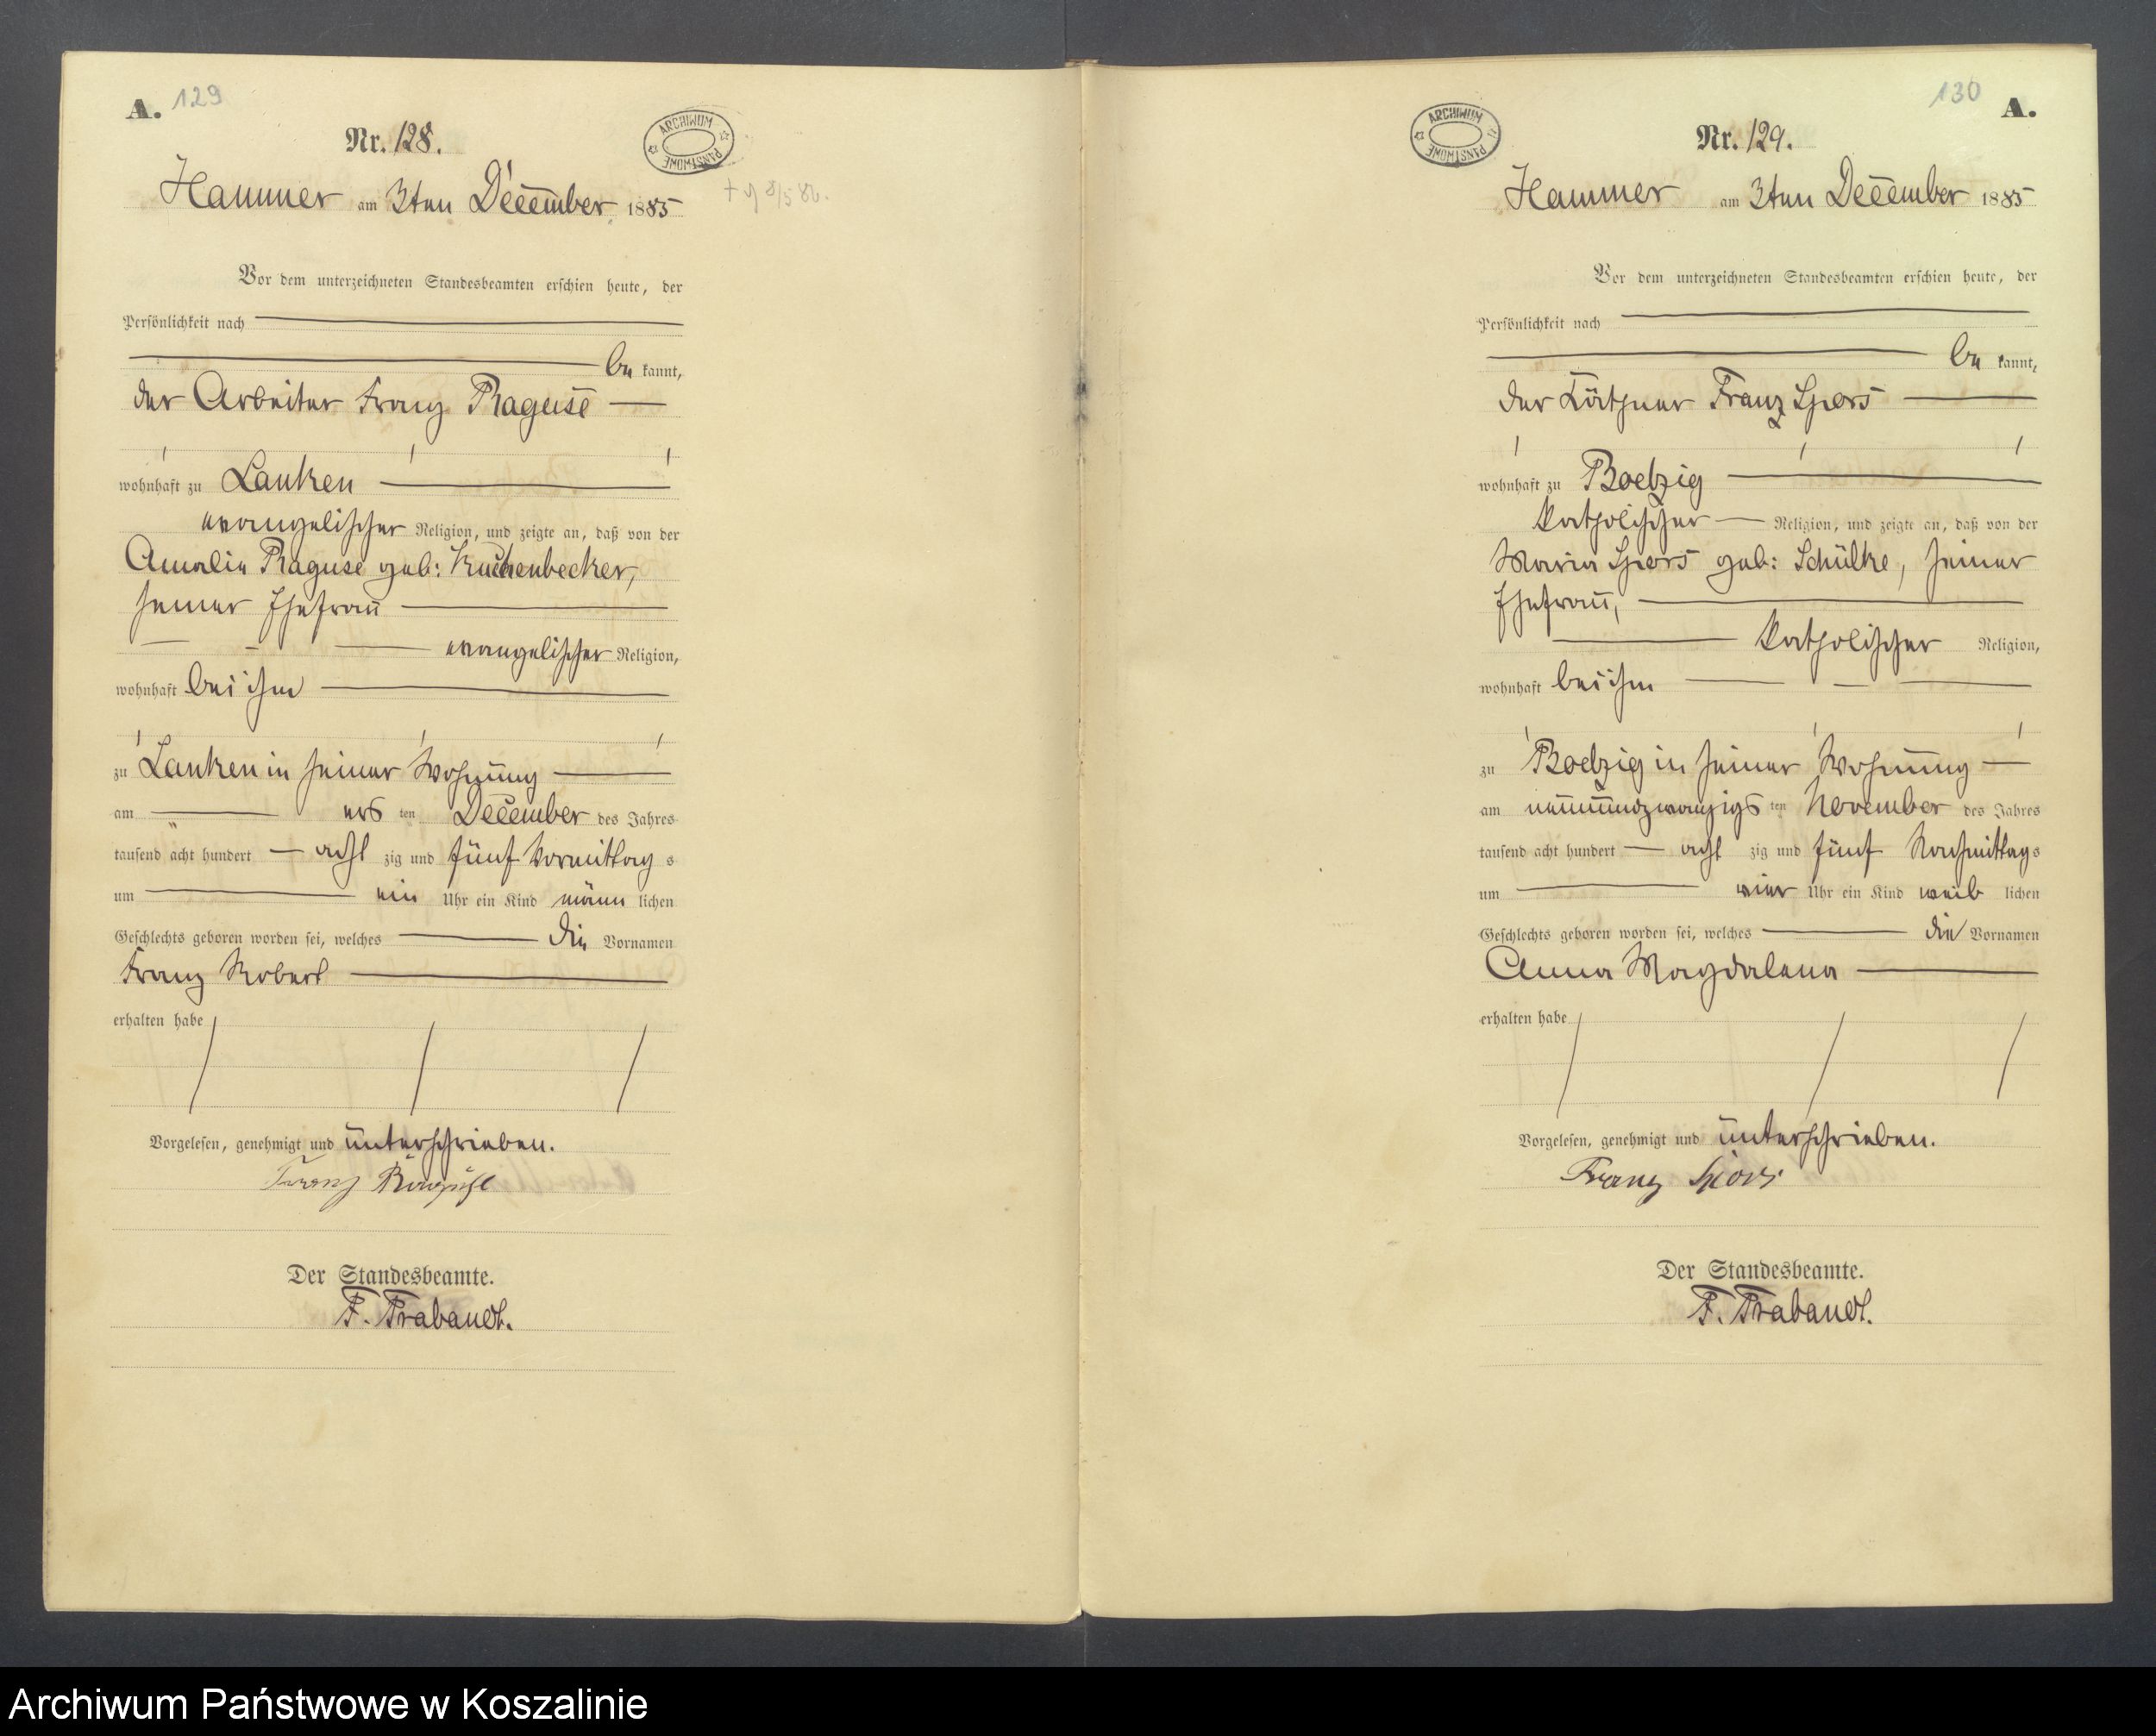 A. 129
ARCHIWUM PAŃSTWOWE
Nr. 128.
Hammer am 3ten December 1885
Vor dem unterzeichneten Standesbeamten erschien heute, der
Persönlichkeit nach
be kannt,
der Arbeiter Franz Raguse
wohnhaft zu Lanken
evangelischer Religion, und zeigte an, daß von der
Amalie Raguse geb: Kuchenbecker,
seiner Ehefrau
evangelischer Religion,
wohnhaft bei ihm
zu Lanken in seiner Wohnung
am ers ten December des Jahres
tausend acht hundert acht zig und fünf Vormittag s
um ein Uhr ein Kind männ lichen
Geschlechts geboren worden sei, welches die Vornamen
Franz Robert
erhalten habe
Vorgelesen, genehmigt und unterschrieben.
Franz Raguse
Der Standesbeamte.
F. Trabandt.
130 A.
ARCHIWUM PAŃSTWOWE
Nr. 129.
Hammer am 3ten December 1885
Vor dem unterzeichneten Standesbeamten erschien heute, der
Persönlichkeit nach
be kannt,
der Käthner Franz Spors
wohnhaft zu Boelzig
katholischer Religion, und zeigte an, daß von der
Maria Spors geb: Schülke, seiner
Ehefrau,
katholischer Religion,
wohnhaft bei ihm
zu Boelzig in seiner Wohnung
am neunundzwanzigs ten November des Jahres
tausend acht hundert acht zig und fünf Nachmittags
um vier Uhr ein Kind weib lichen
Geschlechts geboren worden sei, welches die Vornamen
Anna Magdalena
erhalten habe
Vorgelesen, genehmigt und unterschrieben.
Franz Spors
Der Standesbeamte.
F. Trabandt.
Archiwum Państwowe w Koszalinie